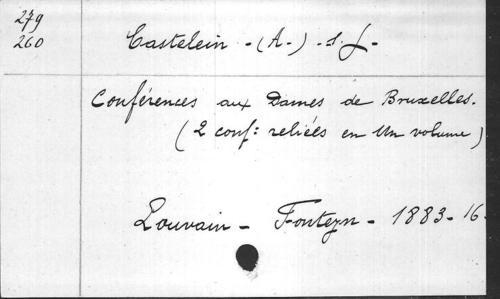 279
260
Castelein - (A-) - s. J -
Conférences aux Dames de Bruxelles.
(2 conf: reliées en Un volume)
Louvain - Fonteyn - 1883 - 16